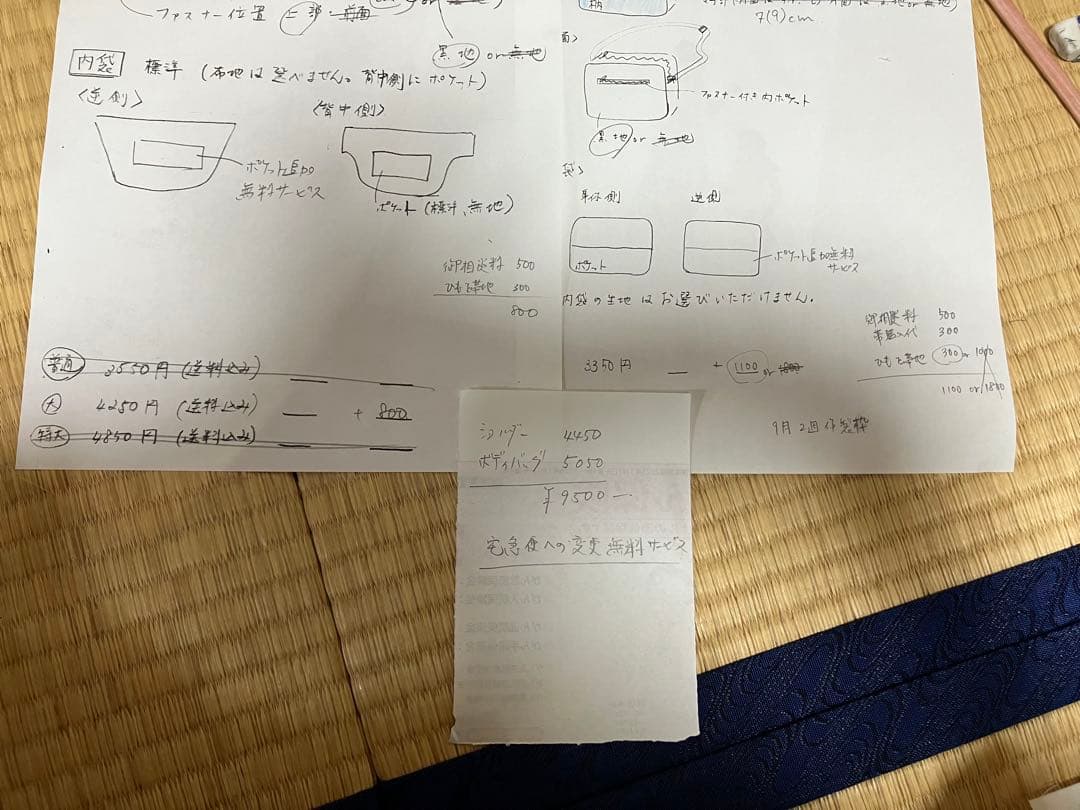 ファスナー位置 上部・前面
黒地 or 無地
内袋 標準 (布地は選べません。背中側にポケット)
〈逆側〉
〈背中側〉
ポケット追加
無料サービス
ポケット(標準、無地)
御相談料 500
ひも+帯地 300
800
普通 3550円 (送料込み)
大 4250円 (送料込み) + 800
特大 4850円 (送料込み)
柄
7(9)cm
ファスナー付き内ポケット
黒地 or 無地
身体側
逆側
ポケット
ポケット追加無料
サービス
内袋の生地はお選びいただけません。
御相談料 500
300
ひも+帯地 300 or 1000
1100 or 1800
3350円 + 1100 or 1800
9月2週作製枠
ショルダー 4450
ボディバッグ 5050
¥9500ー
宅急便への変更無料サービス